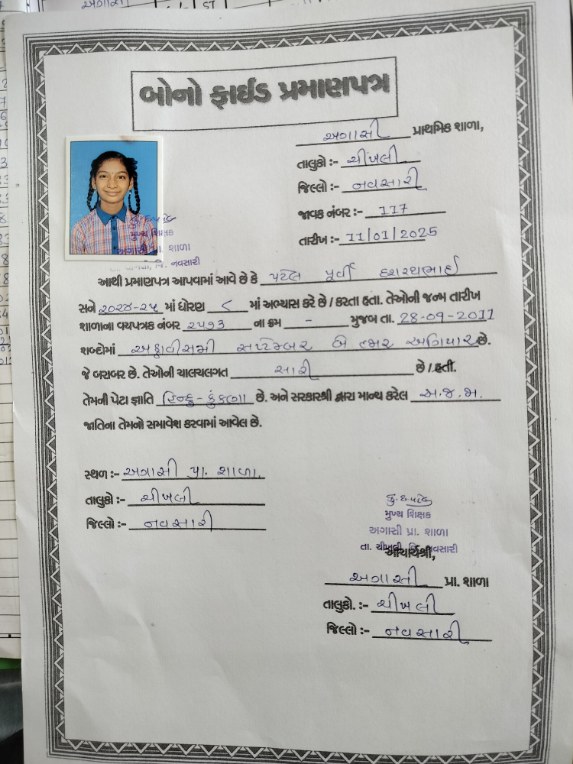 બોનો ફાઈડ પ્રમાણપત્ર
અગાસી પ્રાથમિક શાળા,
તાલુકો :- ચીખલી
જિલ્લો :- નવસારી
જાવક નંબર :- 117
તારીખ :- 11/01/2025
મુખ્ય શિક્ષક
અગાસી પ્રા. શાળા
નવસારી
આથી પ્રમાણપત્ર આપવામાં આવે છે કે પટેલ પૂર્વી દશરથભાઈ
સને ૨૦૨૪-૨૫ માં ધોરણ ૮ માં અભ્યાસ કરે છે / કરતા હતા. તેઓની જન્મ તારીખ
શાળાના વયપત્રક નંબર ૨૫૧૩ ના ક્રમ - મુજબ તા. 28-09-2011
શબ્દોમાં અઠ્ઠાવીસમી સપ્ટેમ્બર બે હજાર અગિયાર છે.
જે બરાબર છે. તેઓની ચાલચલગત સારી છે / હતી.
તેમની પેટા જ્ઞાતિ હિન્દુ-કુંકણા છે. અને સરકારશ્રી દ્વારા માન્ય કરેલ અ.જ.જા.
જાતિના તેમનો સમાવેશ કરવામાં આવેલ છે.
સ્થળ :- અગાસી પ્રા. શાળા.
તાલુકો :- ચીખલી
જિલ્લો :- નવસારી
મુખ્ય શિક્ષક
અગાસી પ્રા. શાળા
તા. ચીખલી જિ. નવસારી
આચાર્યશ્રી,
અગાસી પ્રા. શાળા
તાલુકો. :- ચીખલી
જિલ્લો :- નવસારી